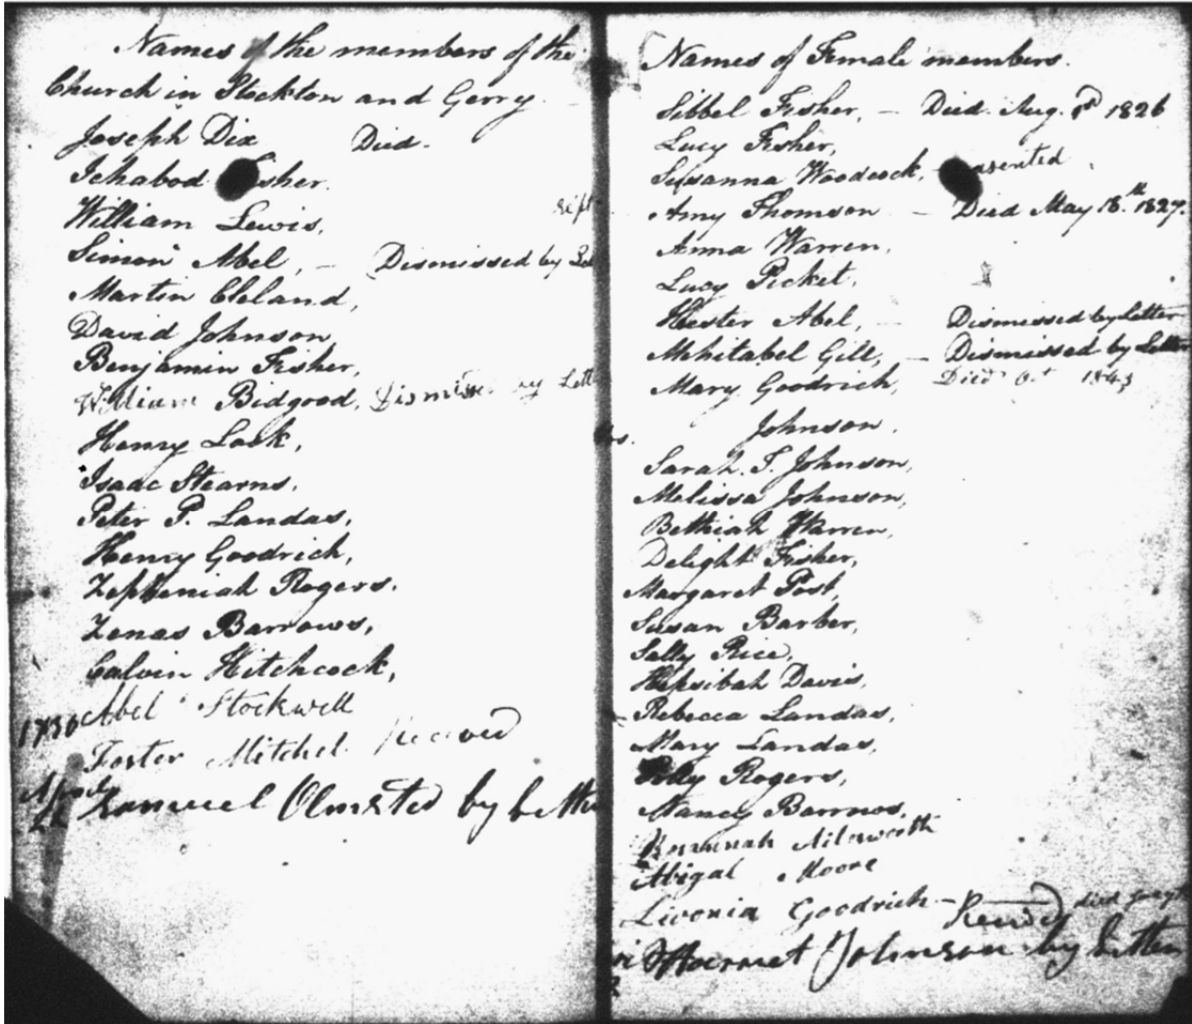 Names of the members of the
Church in Stockton and Gerry.
Joseph Dix Died.
Ichabod Fisher.
William Lewis,
Simon Abel, – Dismissed by
Martin Cleland,
David Johnson,
Benjamin Fisher,
William Bidgood, Dismissed by Lett
Henry Look,
Isaac Stearns,
Peter P. Landas,
Henry Goodrich,
Zepheniah Rogers.
Zenas Barrows,
Calvin Hitchcock,
1830 Abel Stockwell
Foster Mitchel. Received
Samuel Olmsted by lette
Names of Female members.
Sibbel Fisher, – Died. Aug. 1826
Lucy Fisher,
Susanna Woodcock, –
Amy Thomson – Died May 18.th 1827.
Anna Warren,
Lucy Picket,
Hester Abel, – Dismissed by Letter
Mehitabel Gill, – Dismissed by Letter
Mary Goodrich, Died Oct 1843
Johnson.
Sarah. T. Johnson,
Melissa Johnson,
Bethiah Warren,
Delight Fisher,
Margaret Post,
Susan Barber,
Sally Rice,
Hepsibah Davis,
Rebecca Landas,
Mary Landas,
Polly Rogers,
Nancy Barrows,
Abigal Moore
Livonia Goodrich – died
Harriet Johnson by letter